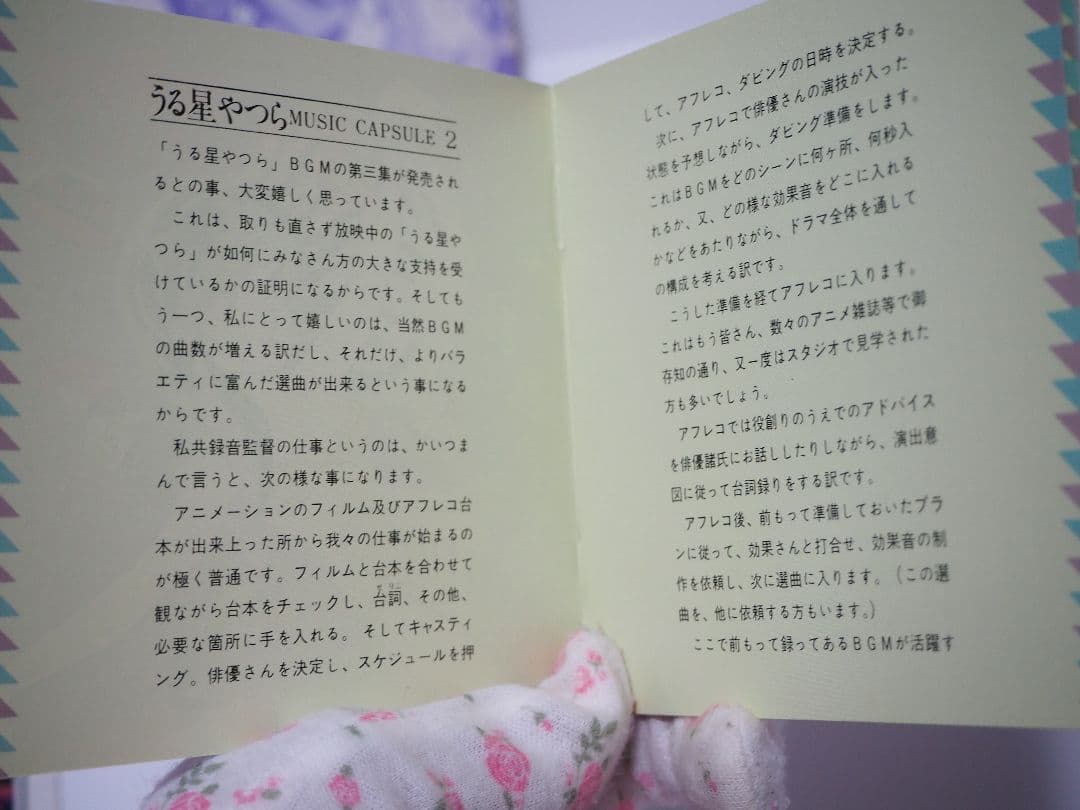 うる星やつらMUSIC CAPSULE 2
「うる星やつら」BGMの第三集が発売され
るとの事、大変嬉しく思っています。
これは、取りも直さず放映中の「うる星や
つら」が如何にみなさん方の大きな支持を受
けているかの証明になるからです。そしても
う一つ、私にとって嬉しいのは、当然BGM
の曲数が増える訳だし、それだけ、よりバラ
エティに富んだ選曲が出来るという事になる
からです。
私共録音監督の仕事というのは、かいつま
んで言うと、次の様な事になります。
アニメーションのフィルム及びアフレコ台
本が出来上った所から我々の仕事が始まるの
が極く普通です。フィルムと台本を合わせて
観ながら台本をチェックし、台詞、その他、
必要な箇所に手を入れる。そしてキャスティ
ング。俳優さんを決定し、スケジュールを押
して、アフレコ、ダビングの日時を決定する。
次に、アフレコで俳優さんの演技が入った
状態を予想しながら、ダビング準備をします。
これはBGMをどのシーンに何ヶ所、何秒入
れるか、又、どの様な効果音をどこに入れる
かなどをあたりながら、ドラマ全体を通して
の構成を考える訳です。
こうした準備を経てアフレコに入ります。
これはもう皆さん、数々のアニメ雑誌等で御
存知の通り、又一度はスタジオで見学された
方も多いでしょう。
アフレコでは役創りのうえでのアドバイス
を俳優諸氏にお話ししたりしながら、演出意
図に従って台詞録りをする訳です。
アフレコ後、前もって準備しておいたプラ
ンに従って、効果さんと打合せ、効果音の制
作を依頼し、次に選曲に入ります。(この選
曲を、他に依頼する方もいます。)
ここで前もって録ってあるBGMが活躍す